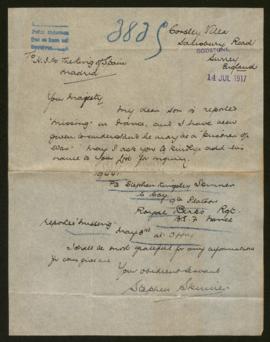 3825
Cowsley Villa
Salisbury Road
GODSTONE,
Surrey
England
14 JUL 1917
To H.M. The King of Spain
Madrid
Your Majesty
My dear son is reported
"missing" in France, and I have been
given to understand he may be a "prisoner of
War" May I ask you to kindly add his
name to your list for enquiry.
Stephen Kingsley Skinner
Coy. 9th Platoon
Royal Berks Regt
B.E.F. France
reported "missing" May 3rd at
I shall be most grateful for any information
you can give me
Your obedient servant
Stephen Skinner